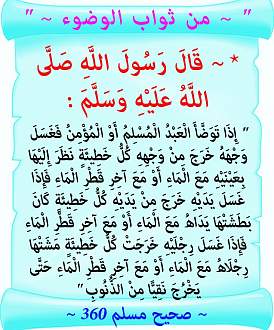 " ~ من ثواب الوضوء ~ "
* ~ قَالَ رَسُولَ اللَّهِ صَلَّى
اللَّهُ عَلَيْهِ وَسَلَّمَ :
" إِذَا تَوَضَّأَ الْعَبْدُ الْمُسْلِمُ أَوْ الْمُؤْمِنُ فَغَسَلَ
وَجْهَهُ خَرَجَ مِنْ وَجْهِهِ كُلُّ خَطِيئَةٍ نَظَرَ إِلَيْهَا
بِعَيْنَيْهِ مَعَ الْمَاءِ أَوْ مَعَ آخِرِ قَطْرِ الْمَاءِ فَإِذَا
غَسَلَ يَدَيْهِ خَرَجَ مِنْ يَدَيْهِ كُلُّ خَطِيئَةٍ كَانَ
بَطَشَتْهَا يَدَاهُ مَعَ الْمَاءِ أَوْ مَعَ آخِرِ قَطْرِ الْمَاءِ
فَإِذَا غَسَلَ رِجْلَيْهِ خَرَجَتْ كُلُّ خَطِيئَةٍ مَشَتْهَا
رِجْلَاهُ مَعَ الْمَاءِ أَوْ مَعَ آخِرِ قَطْرِ الْمَاءِ حَتَّى
يَخْرُجَ نَقِيًّا مِنْ الذُّنُوبِ "
~ صحيح مسلم 360 ~